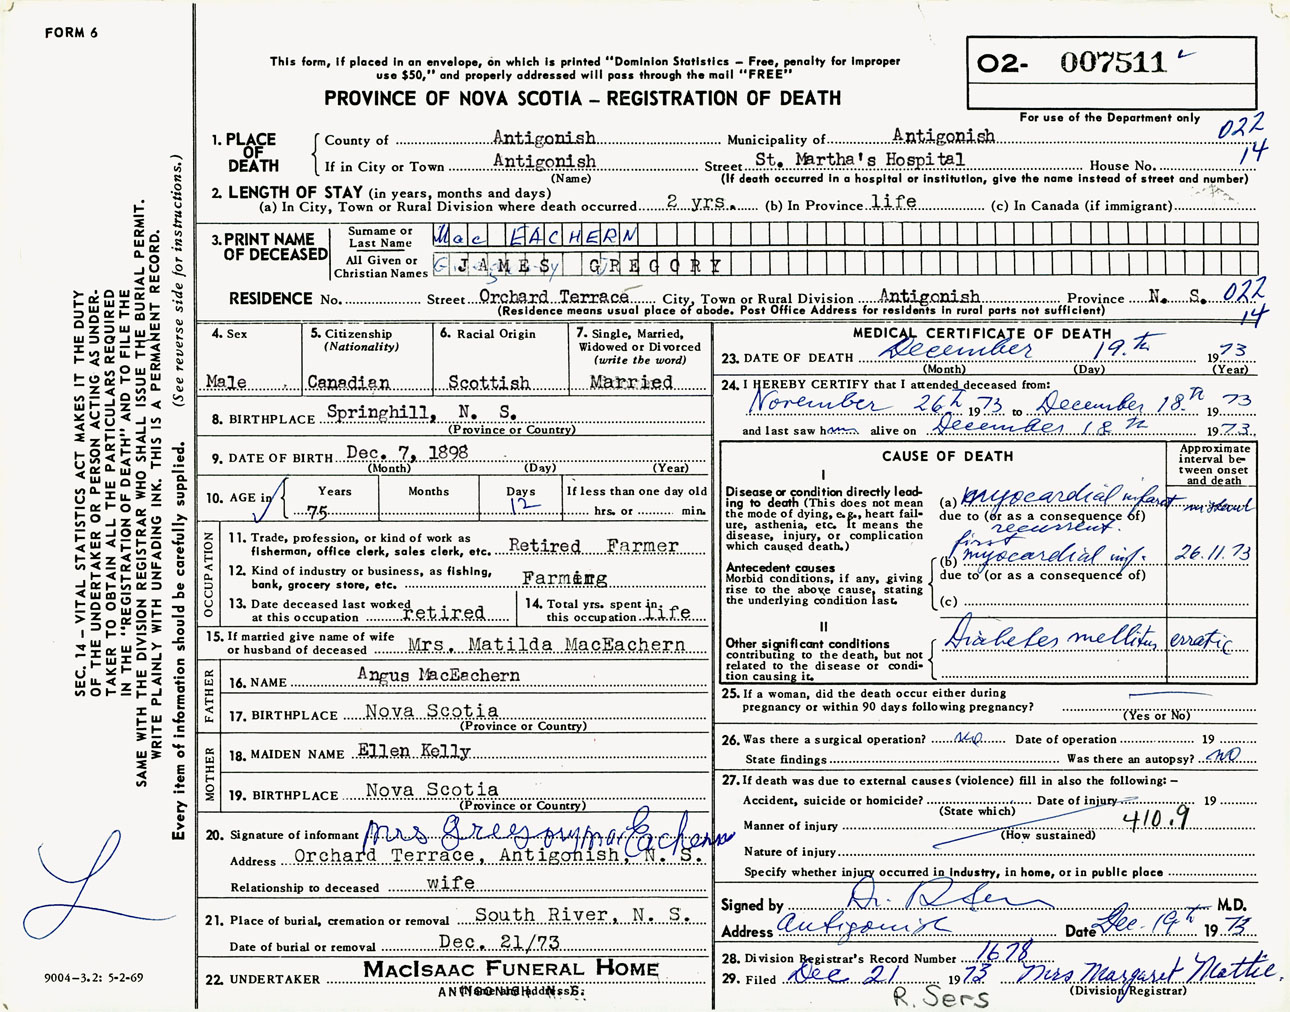 FORM 6
This form, if placed in an envelope, on which is printed "Dominion Statistics – Free, penalty for improper
use $50," and properly addressed will pass through the mail "FREE"
PROVINCE OF NOVA SCOTIA – REGISTRATION OF DEATH
O2- 007511
For use of the Department only
022
14
1. PLACE OF DEATH
County of Antigonish Municipality of Antigonish
If in City or Town Antigonish Street St. Martha's Hospital House No.
(Name) (If death occurred in a hospital or institution, give the name instead of street and number)
2. LENGTH OF STAY (in years, months and days)
(a) In City, Town or Rural Division where death occurred 2 yrs. (b) In Province life (c) In Canada (if immigrant)
3. PRINT NAME OF DECEASED
Surname or Last Name Mac EACHERN
All Given or Christian Names JAMES GREGORY
RESIDENCE No. Street Orchard Terrace City, Town or Rural Division Antigonish Province N. S. 022
(Residence means usual place of abode. Post Office Address for residents in rural parts not sufficient) 14
4. Sex
Male
5. Citizenship
(Nationality)
Canadian
6. Racial Origin
Scottish
7. Single, Married,
Widowed or Divorced
(write the word)
Married
8. BIRTHPLACE Springhill, N. S.
(Province or Country)
9. DATE OF BIRTH Dec. 7, 1898
(Month) (Day) (Year)
10. AGE in
Years Months Days If less than one day old
75 12 hrs. or min.
OCCUPATION
11. Trade, profession, or kind of work as
fisherman, office clerk, sales clerk, etc. Retired Farmer
12. Kind of industry or business, as fishing,
bank, grocery store, etc. Farming
13. Date deceased last worked
at this occupation retired
14. Total yrs. spent in
this occupation life
15. If married give name of wife
or husband of deceased Mrs. Matilda MacEachern
FATHER
16. NAME Angus MacEachern
17. BIRTHPLACE Nova Scotia
(Province or Country)
MOTHER
18. MAIDEN NAME Ellen Kelly
19. BIRTHPLACE Nova Scotia
(Province or Country)
20. Signature of informant Mrs Gregory MacEachern
Address Orchard Terrace, Antigonish, N. S.
Relationship to deceased wife
21. Place of burial, cremation or removal South River, N. S.
Date of burial or removal Dec. 21/73
22. UNDERTAKER MacIsaac Funeral Home
(Name and address)
ANTIGONISH N. S.
MEDICAL CERTIFICATE OF DEATH
23. DATE OF DEATH December 19.th 1973
(Month) (Day) (Year)
24. I HEREBY CERTIFY that I attended deceased from:
November 26th 1973 to December 18.th 1973
and last saw h alive on December 18th 1973.
CAUSE OF DEATH
Approximate
interval be-
tween onset
and death
I
Disease or condition directly lead-
ing to death (This does not mean
the mode of dying, e.g., heart fail-
ure, asthenia, etc. It means the
disease, injury, or complication
which caused death.)
(a) myocardial infarct
due to (or as a consequence of)
recurrent
Antecedent causes
Morbid conditions, if any, giving
rise to the above cause, stating
the underlying condition last.
first
(b) myocardial inf. 26.11.73
due to (or as a consequence of)
(c)
II
Other significant conditions
contributing to the death, but not
related to the disease or condi-
tion causing it.
Diabetes mellitus erratic
25. If a woman, did the death occur either during
pregnancy or within 90 days following pregnancy?
(Yes or No)
26. Was there a surgical operation? no Date of operation 19
State findings Was there an autopsy? NO
27. If death was due to external causes (violence) fill in also the following: –
Accident, suicide or homicide? Date of injury 19
(State which)
Manner of injury 410.9
(How sustained)
Nature of injury
Specify whether injury occurred in industry, in home, or in public place
Signed by Dr. R Sers M.D.
Address Antigonish Date Dec. 19th 1973
28. Division Registrar's Record Number 1678
29. Filed Dec 21 1973 Mrs Margaret Mattie.
(Division Registrar)
R. Sers
SEC. 14 – VITAL STATISTICS ACT MAKES IT THE DUTY
OF THE UNDERTAKER OR PERSON ACTING AS UNDER-
TAKER TO OBTAIN ALL THE PARTICULARS REQUIRED
IN THE "REGISTRATION OF DEATH" AND TO FILE THE
SAME WITH THE DIVISION REGISTRAR WHO SHALL ISSUE THE BURIAL PERMIT.
WRITE PLAINLY WITH UNFADING INK. THIS IS A PERMANENT RECORD.
Every item of information should be carefully supplied. (See reverse side for instructions.)
9004–3.2: 5-2-69